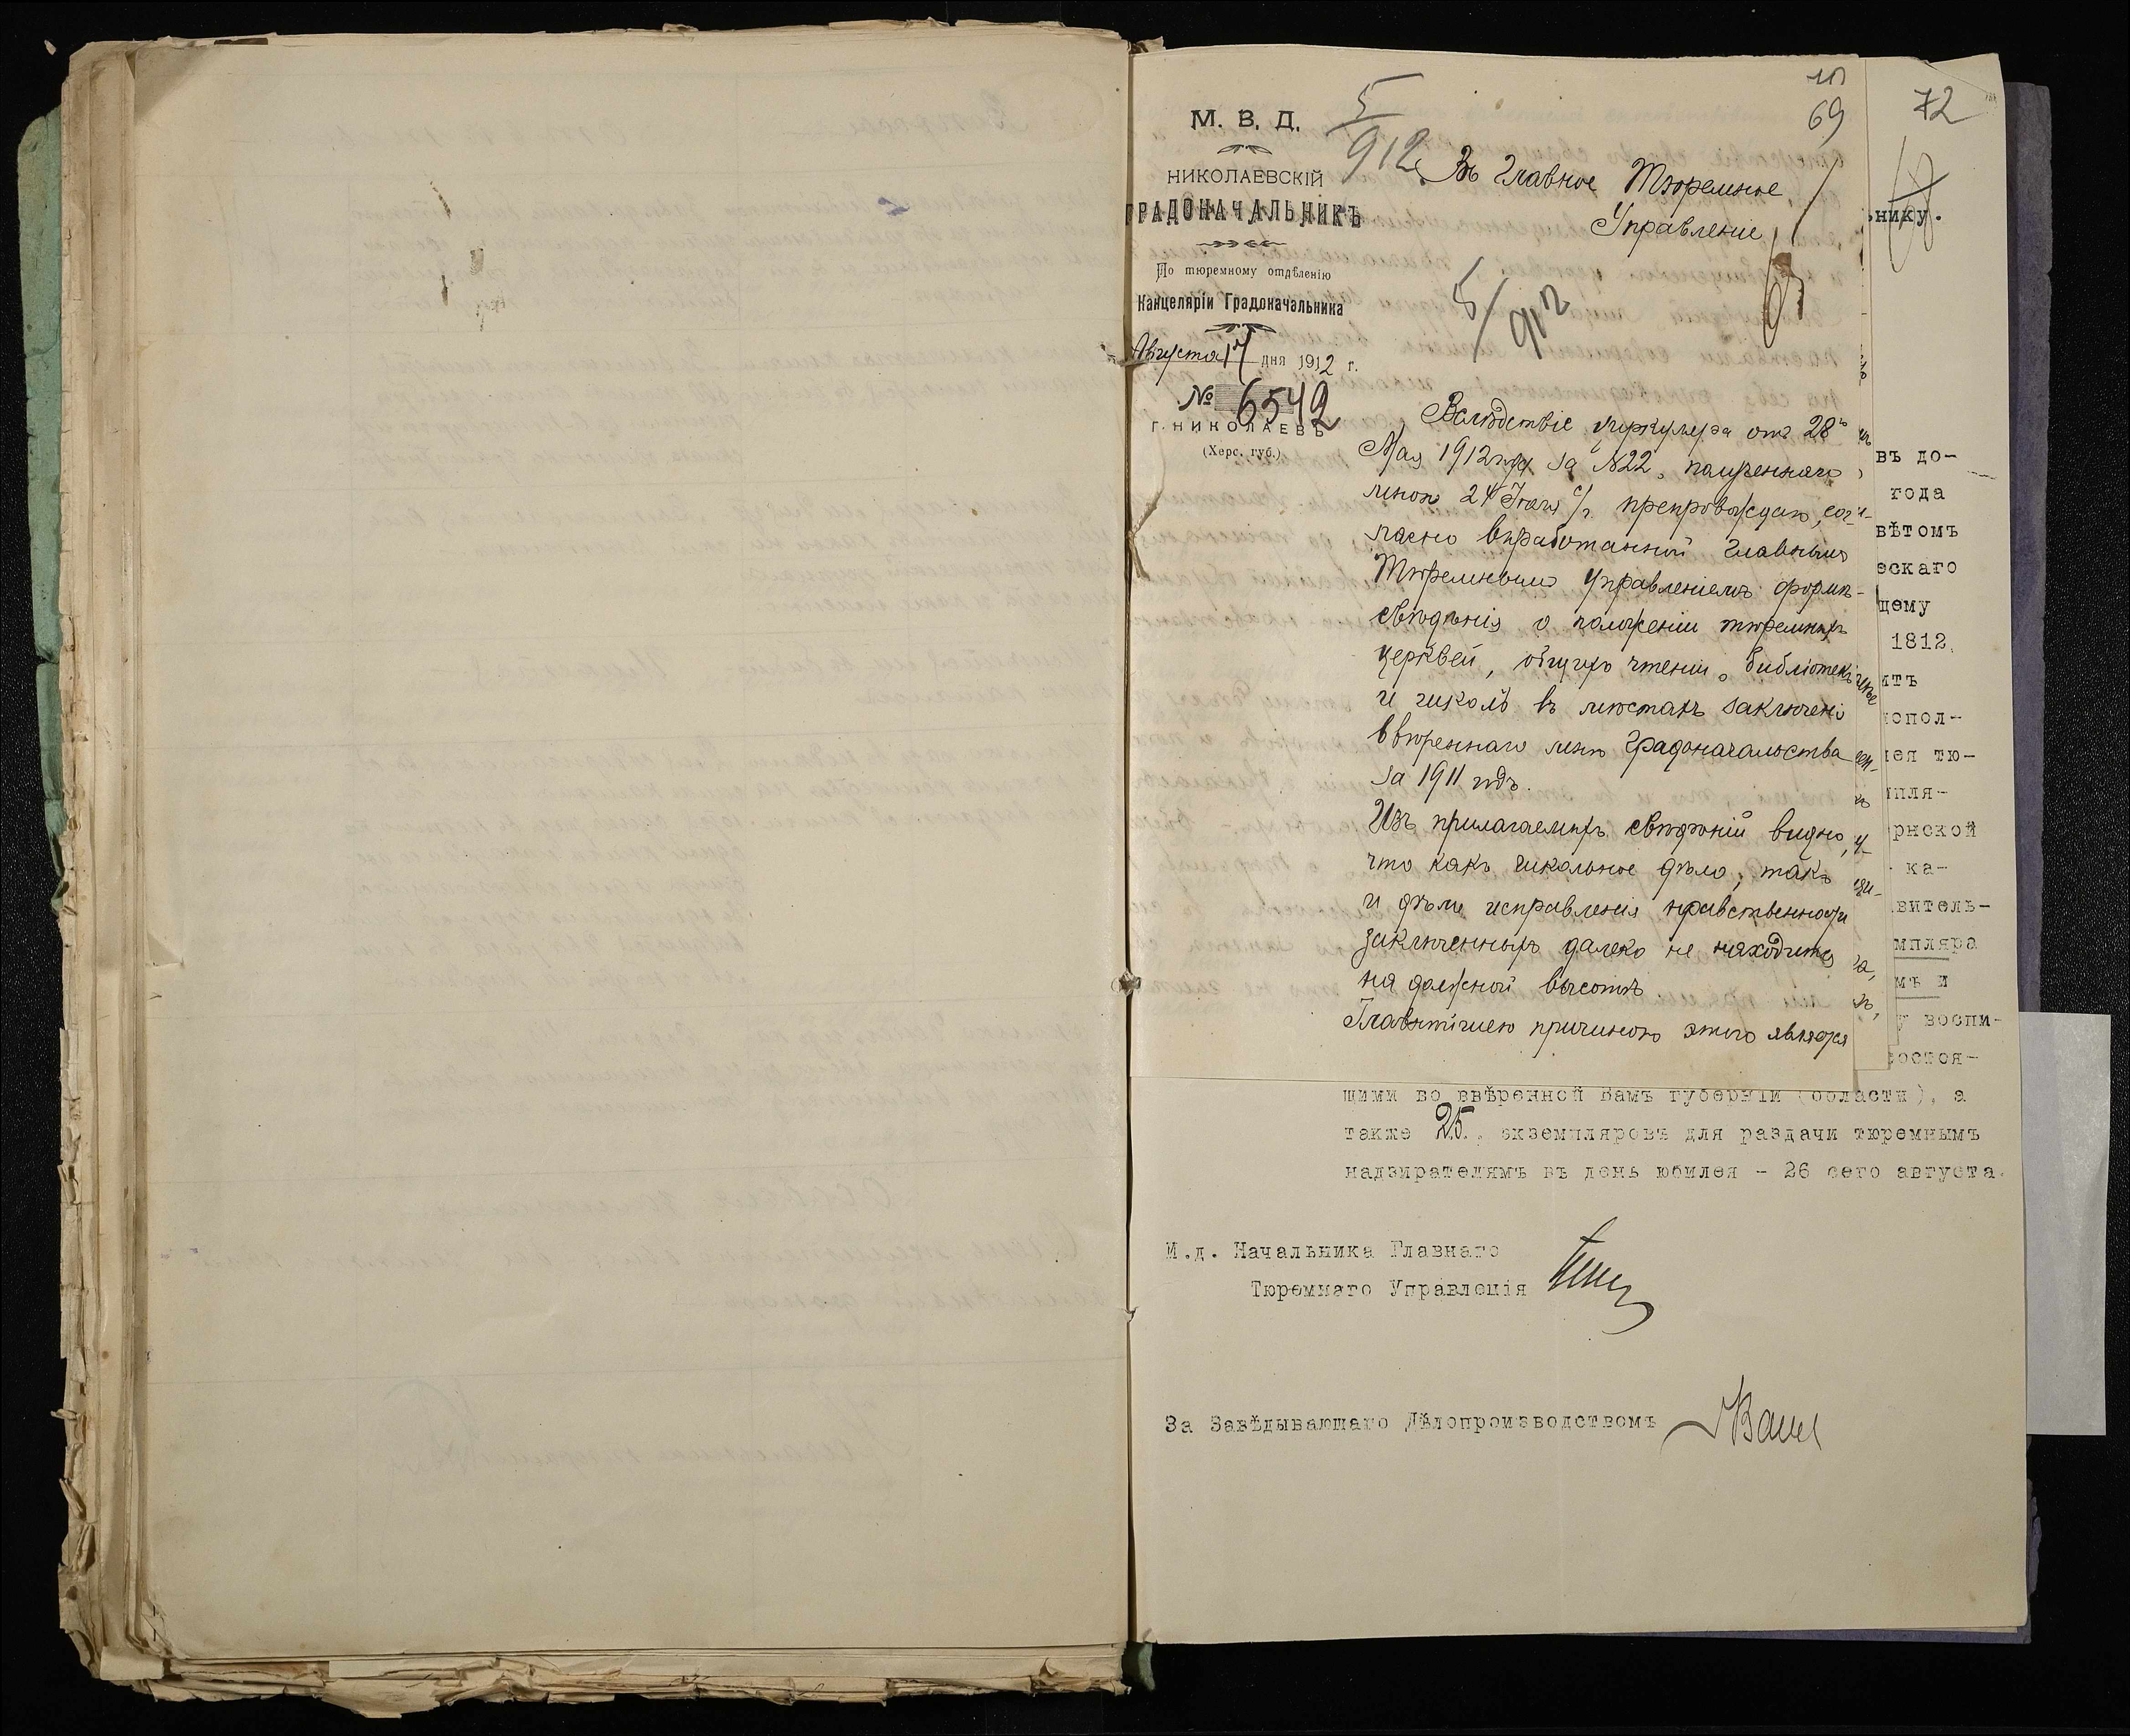 М. В. Д.
НИКОЛАЕВСКІЙ
ГРАДОНАЧАЛЬНИКЪ
По тюремному отдѣленію
Канцеляріи Градоначальника
Августа 17 дня 1912 г.
№ 6542
Г. НИКОЛАЕВЪ
(Херс. губ.)
5/912
69
Въ Главное Тюремное
Управленіе
5/912
Вслѣдствіе циркуляра отъ 28
Мая 1912 года за №22, полученнаго
мною 24 Іюля с/г. препровождаю, сог-
ласно выработанной Главнымъ
Тюремнымъ Управленіемъ формѣ-
свѣдѣнія о положеніи тюремныхъ
церквей, общихъ чтеній, библіотекъ
и школъ въ мѣстахъ заключенія
ввѣреннаго мнѣ Градоначальства
за 1911 годъ.
Изъ прилагаемыхъ свѣдѣній видно,
что какъ школьное дѣло, такъ
и дѣло исправленія нравственности
заключенныхъ далеко не находится
на должной высотѣ
Главнѣйшею причиною этого является
72
нику.
въ до-
года
вѣтомъ
ескаго
щему
1812
ятъ
опол-
ея тю-
мпля-
рнской
ка-
витель-
мпляра
мъ и
у воспи-
остоя-
щими во ввѣренной Вамъ губерніи (области), а
также 25 экземпляровъ для раздачи тюремнымъ
надзирателямъ въ день юбилея - 26 сего августа.
И.д. Начальника Главнаго
Тюремнаго Управленія
За Завѣдывающаго Дѣлопроизводствомъ